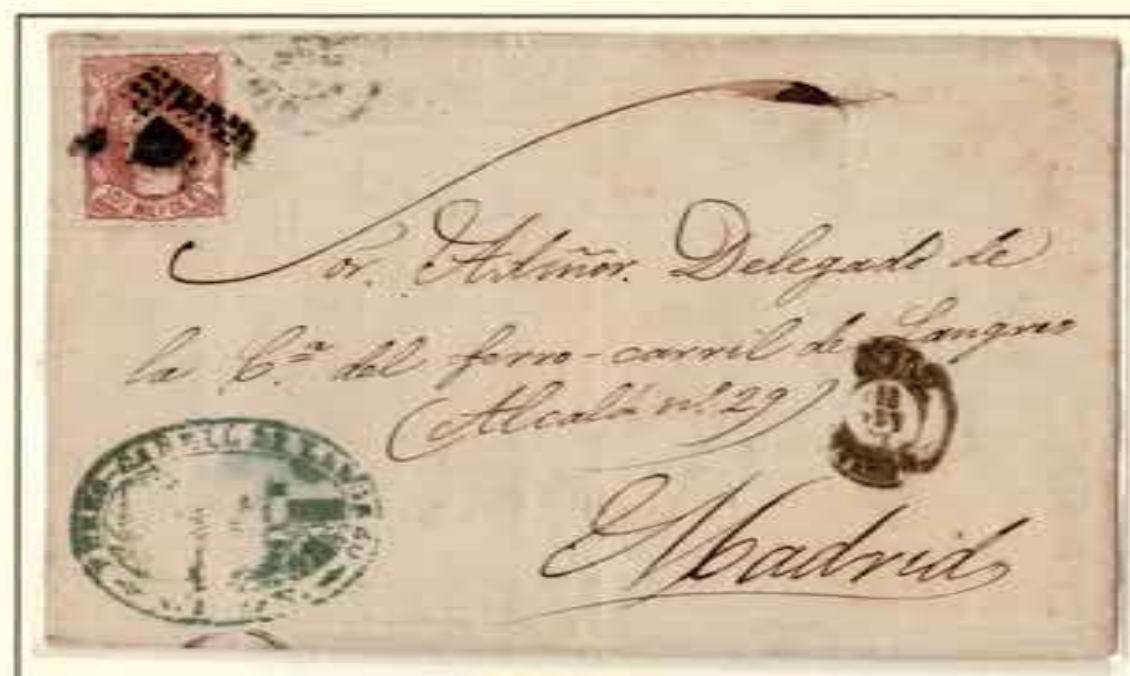 Sor. Admor. Delegado de
la C.ª del ferro-carril de Langreo
(Alcalá n.º 29)
Madrid
FERRO-CARRIL DE LANGREO